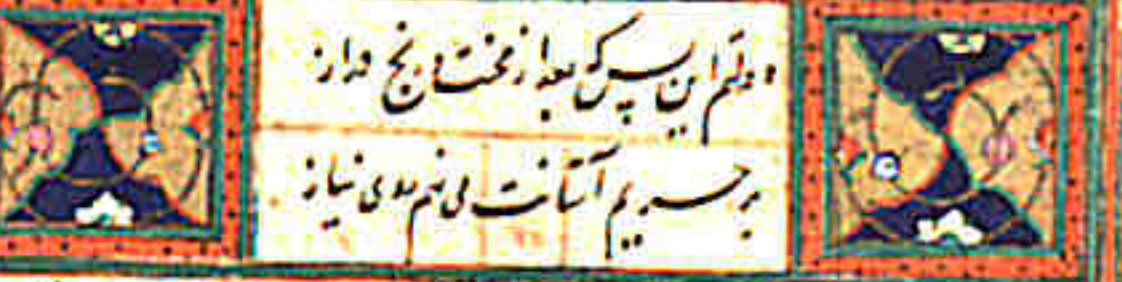 دولتم این بس که بعد از محنت و رنج دراز
بر حریم آستانت می نهم روی نیاز